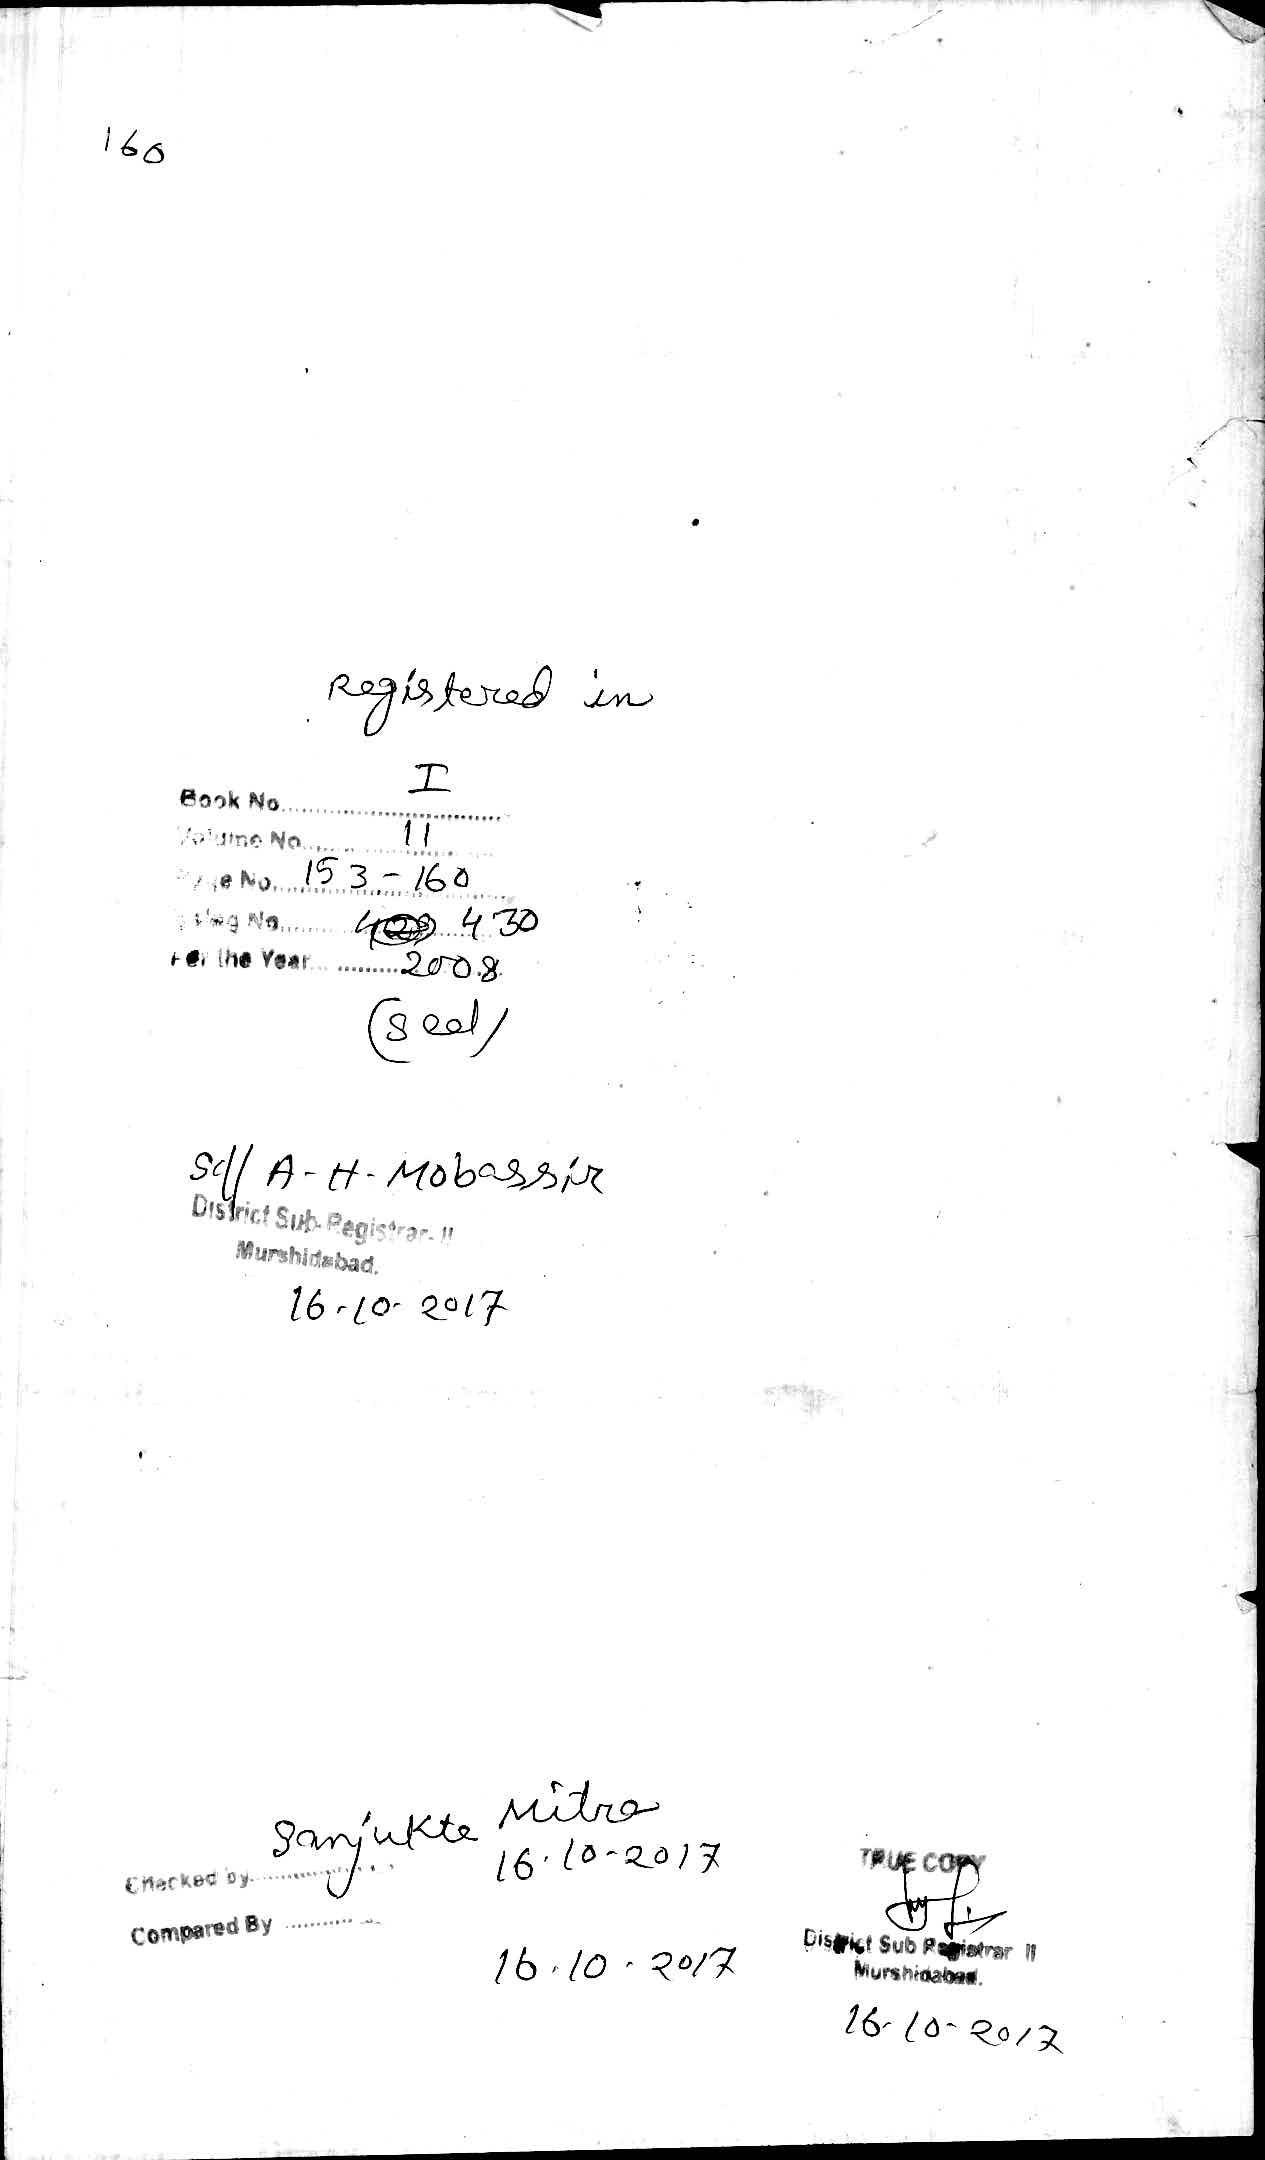 160
Registered in
Book No. I
Volume No. 11
Page No. 153-160
Being No. 430
For the Year 2008
(Seal)
Sd/ A-H-Mobassir
District Sub-Registrar-II
Murshidabad.
16-10-2017
Sanjukta Mitra
Checked by 16.10-2017
Compared By
16.10.2017
TRUE COPY
District Sub Registrar II
Murshidabad.
16-10-2017